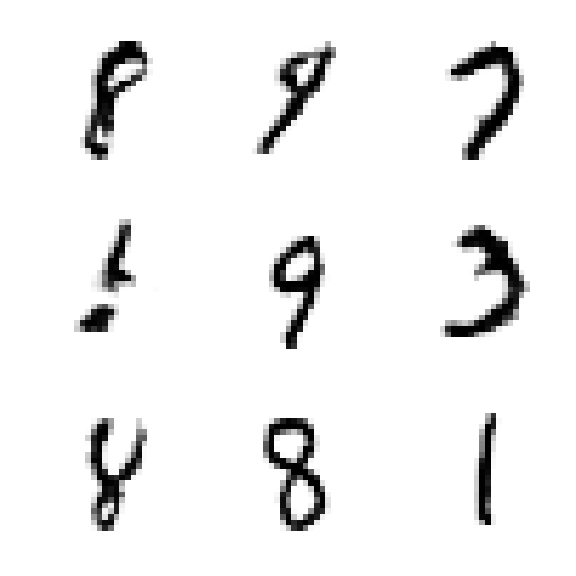 8 9 7
9 3
8 8 1